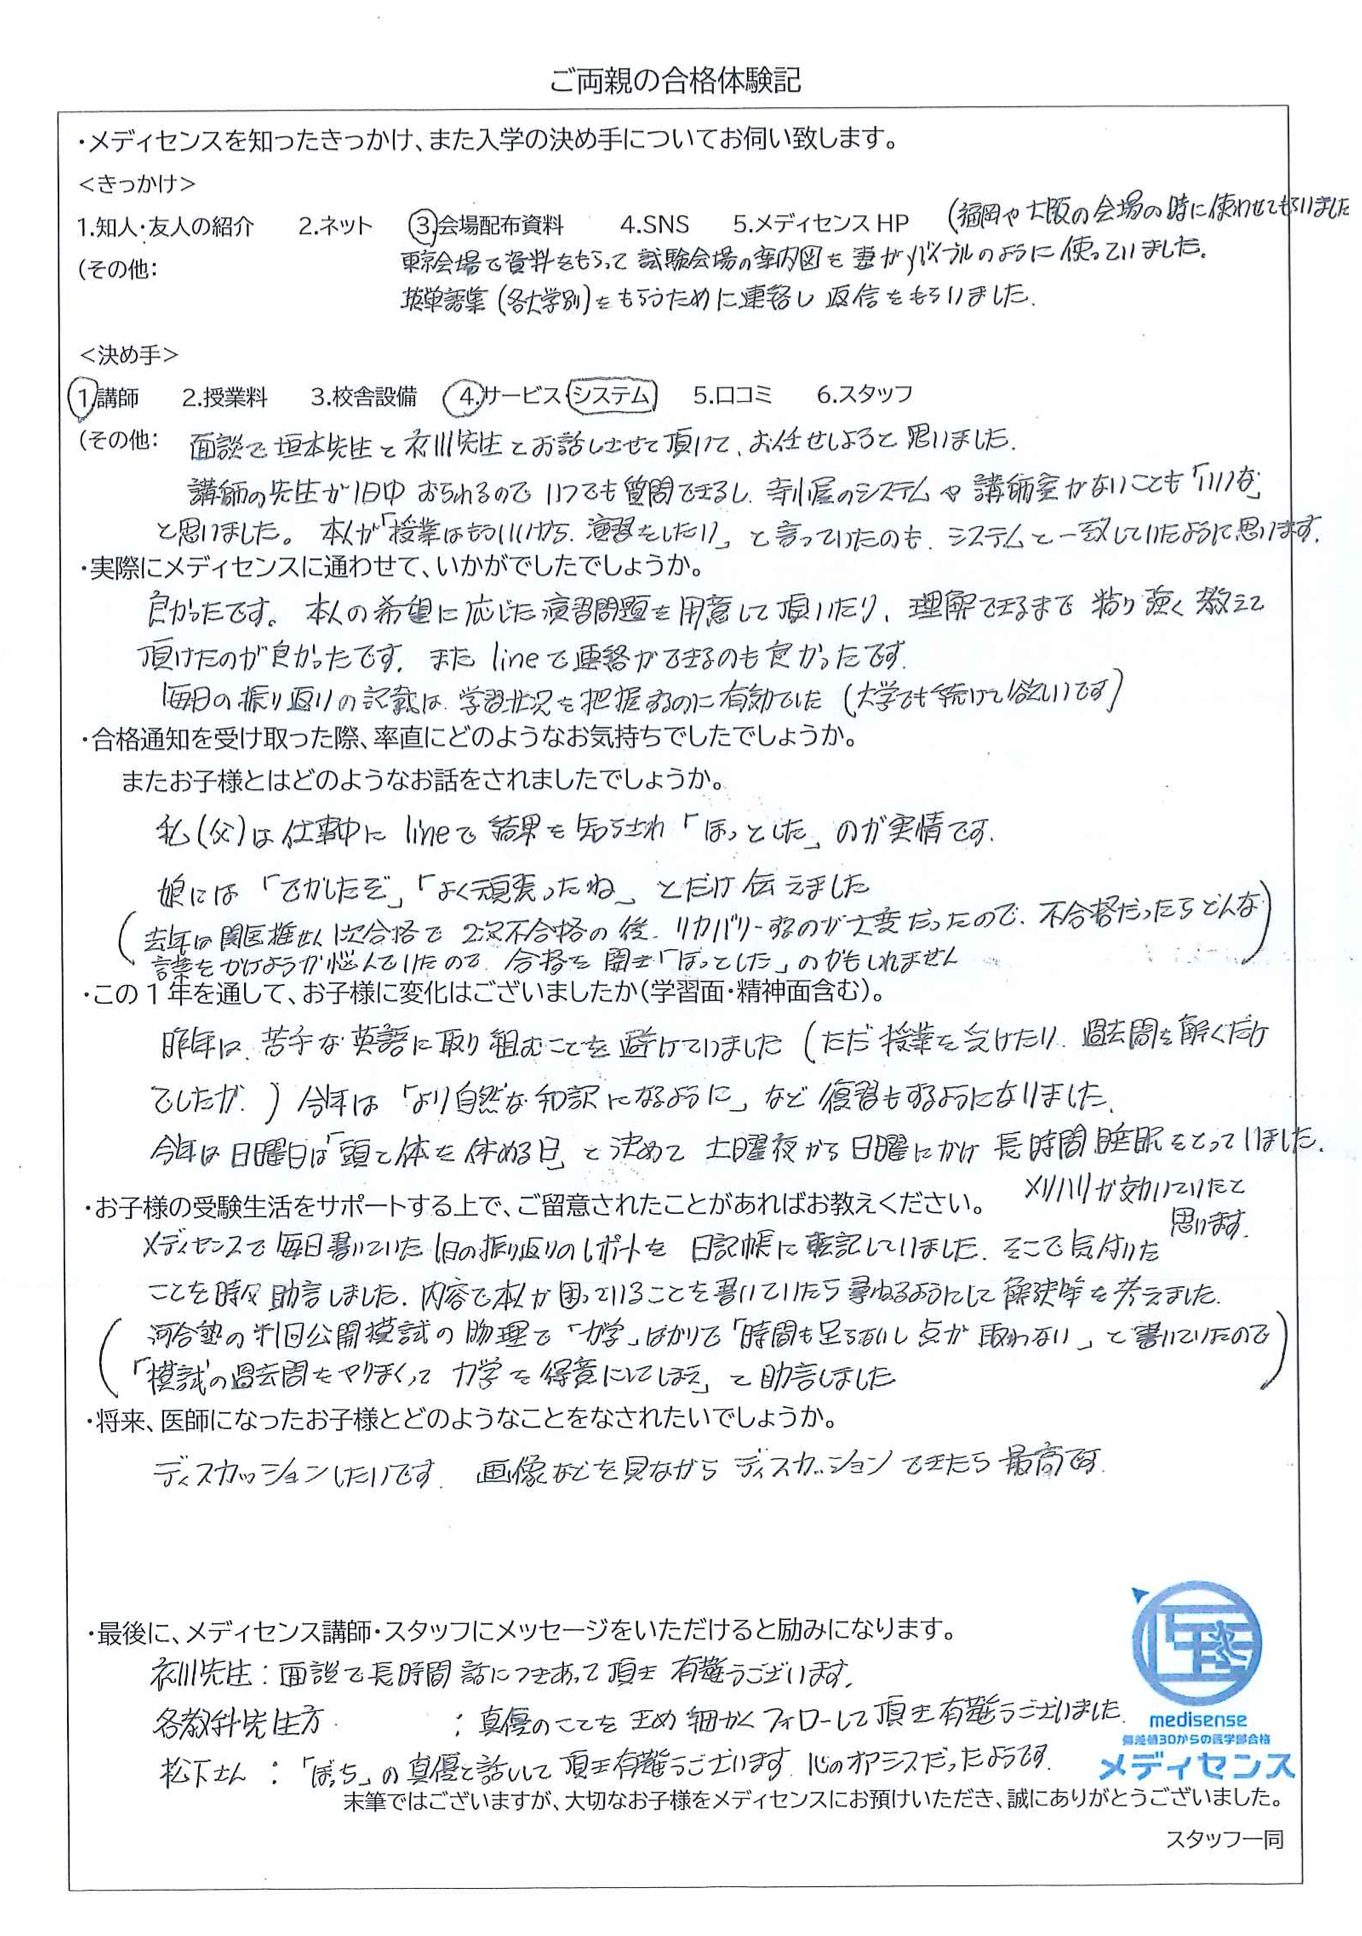 ご両親の合格体験記
・メディセンスを知ったきっかけ、また入学の決め手についてお伺い致します。
＜きっかけ＞
1.知人・友人の紹介 2.ネット 3.会場配布資料 4.SNS 5.メディセンスHP (福岡や大阪の会場の時に使わせてもらいました
(その他: 東京会場で資料をもらって試験会場の案内図を妻がバイブルのように使っていました。
英単語集(各大学別)をもらうために連絡し返信をもらいました。
＜決め手＞
1.講師 2.授業料 3.校舎設備 4.サービス・システム 5.口コミ 6.スタッフ
(その他: 面談で垣本先生と衣川先生とお話しさせて頂いて、お任せしようと思いました。
講師の先生が1日中おられるのでいつでも質問できるし、寺小屋のシステムや講師室がないことも「いいな」
と思いました。本人が「授業はもういいから、演習をしたい」と言っていたのも、システムと一致していたように思います。
・実際にメディセンスに通わせて、いかがでしたでしょうか。
良かったです。本人の希望に応じた演習問題を用意して頂いたり、理解できるまで粘り強く教えて
頂けたのが良かったです。また lineで連絡ができるのも良かったです。
毎日の振り返りの記載は、学習状況を把握するのに有効でした(大学でも続けて欲しいです)
・合格通知を受け取った際、率直にどのようなお気持ちでしたでしょうか。
またお子様とはどのようなお話をされましたでしょうか。
私(父)は仕事中に lineで結果を知らされ「ほっとした」のが実情です。
娘には「でかしたぞ」「よく頑張ったね」とだけ伝えました
(去年は関医推せん1次合格で2次不合格の後、リカバリーするのが大変だったので、不合格だったらどんな
言葉をかけようか悩んでいたので、合格を聞き「ほっとした」のかもしれません)
・この1年を通して、お子様に変化はございましたか(学習面・精神面含む)。
昨年は、苦手な英語に取り組むことを避けていました(ただ授業を受けたり、過去問を解くだけ
でしたが。)今年は「より自然な和訳になるように」など復習もするようになりました。
今年は日曜日は「頭と体を休める日」と決めて土曜夜から日曜にかけ長時間睡眠をとっていました。
メリハリが効いていたと
思います。
・お子様の受験生活をサポートする上で、ご留意されたことがあればお教えください。
メディセンスで毎日書いていた1日の振り返りのレポートを日記帳に転記していました。そこで気付いた
ことを時々助言しました。内容で本人が困っていることを書いていたら尋ねるようにして解決策を考えました。
(河合塾の第1回公開模試の物理で「力学」ばかりで「時間も足らないし点が取れない」と書いていたので
「模試の過去問をやりまくって力学を得意にしてしまえ」と助言しました)
・将来、医師になったお子様とどのようなことをなされたいでしょうか。
ディスカッションしたいです。画像などを見ながらディスカッションできたら最高です。
・最後に、メディセンス講師・スタッフにメッセージをいただけると励みになります。
衣川先生:面談で長時間話につきあって頂き有難うございます。
各教科先生方:真優のことをきめ細かくフォローして頂き有難うございました。
松下さん:「ぼっち」の真優と話して頂き有難うございます。心のオアシスだったようです。
medisense
偏差値30からの医学部合格
メディセンス
末筆ではございますが、大切なお子様をメディセンスにお預けいただき、誠にありがとうございました。
スタッフ一同